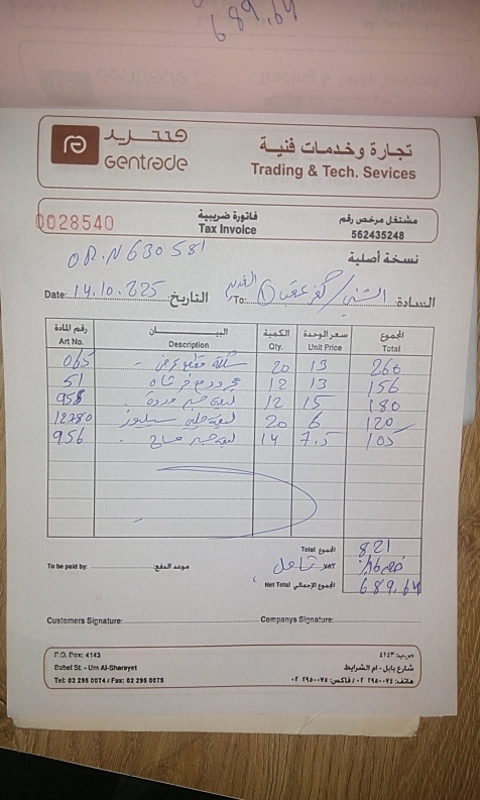 689.64
جنترید
Gentrade
تجارة وخدمات فنية
Trading & Tech. Sevices
0028540
فاتورة ضريبية
Tax Invoice
مشتغل مرخص رقم
562435248
نسخة أصلية
OR.N 630581
Date: 14.10.225 التاريخ:
To: السادة:
رقم المادة البيـــــان الكمية سعر الوحدة المجموع
Art No. Description Qty. Unit Price Total
065 20 13 260
51 12 13 156
958 12 15 180
12780 20 6 120
956 14 7.5 105
Total المجموع 821
VAT شامل خصم 16%
Net Total المجموع الإجمالي 689.64
To be paid by: موعد الدفع:
Customers Signature: Companys Signature:
P.O. Box: 4143
Babel St. - Um Al-Sharayet
Tel: 02 295 0074 / Fax: 02 295 0075
ص.ب: ٤١٤٣
شارع بابل - ام الشرايط
هاتف: ٢٩٥٠٠٧٤ ٠٢ / فاكس: ٢٩٥٠٠٧٥ ٠٢